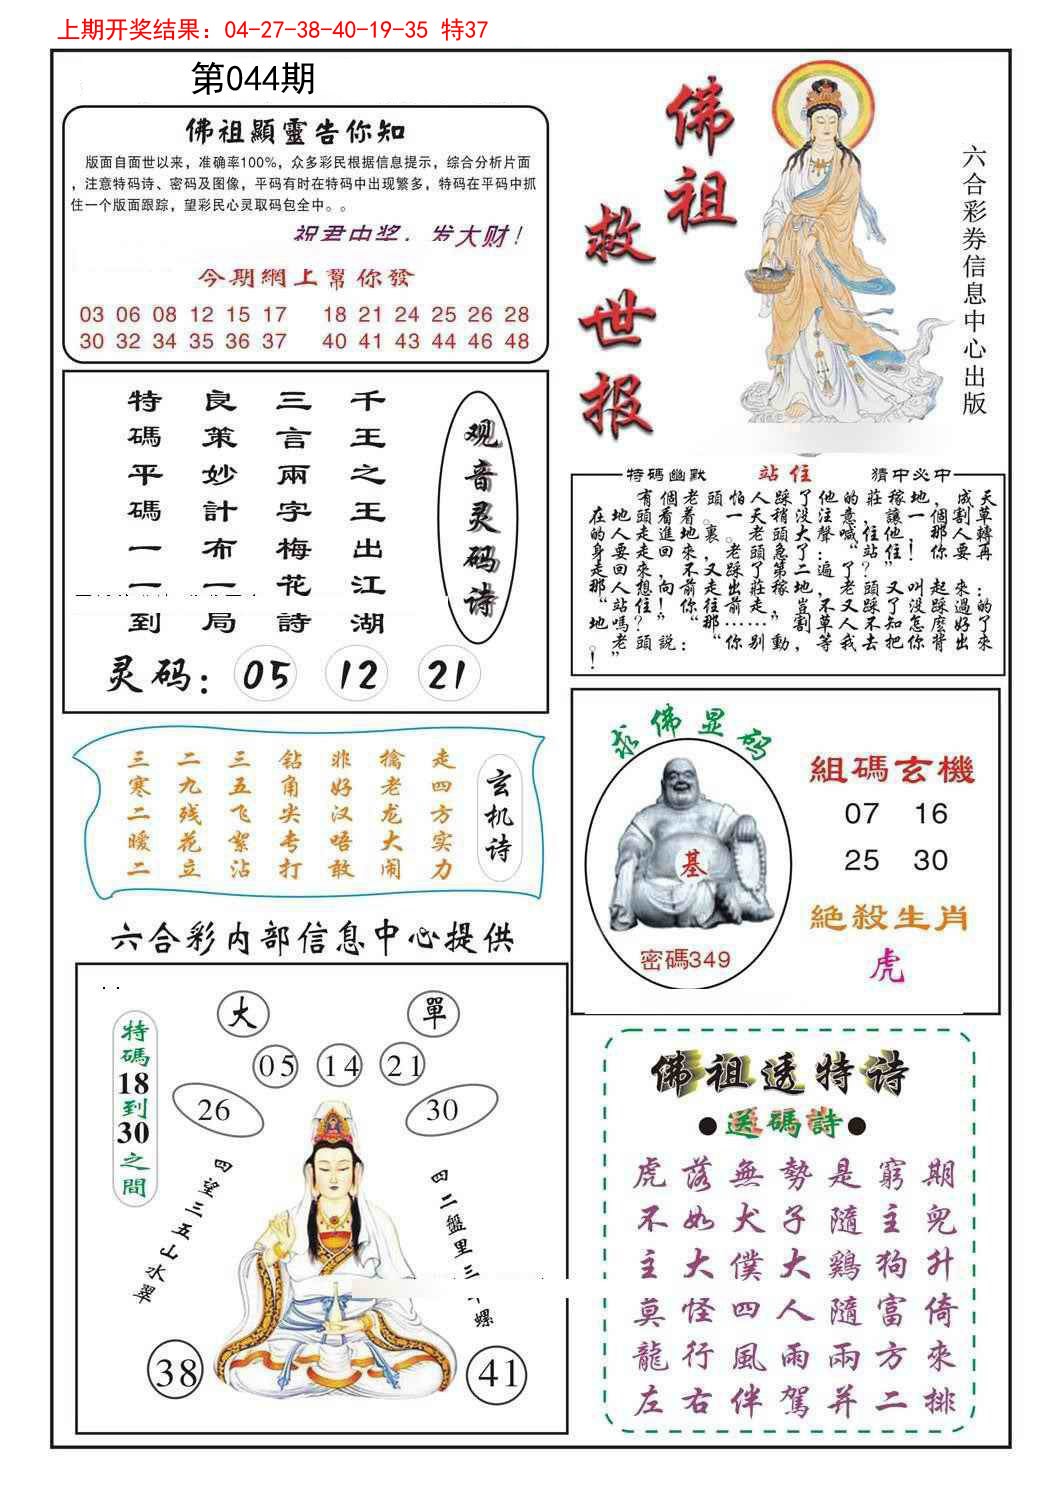 上期开奖结果：04-27-38-40-19-35 特37
第044期
佛祖顯靈告你知
版面自面世以来，准确率100%，众多彩民根据信息提示，综合分析片面
，注意特码诗、密码及图像，平码有时在特码中出现繁多，特码在平码中抓
住一个版面跟踪，望彩民心灵取码包全中。。
祝君中奖，发大财！
今期網上幫你發
03 06 08 12 15 17 18 21 24 25 26 28
30 32 34 35 36 37 40 41 43 44 46 48
佛祖
救世报
六合彩券信息中心出版
观音灵码诗
千王之王出江湖
三言兩字梅花詩
良策妙計布一局
特碼平碼一一到
灵码：05 12 21
特碼幽默 站住 猜中必中
有個老頭怕人踩了他的莊稼地，成天
在地頭看着。一天稍没注意，讓一個割草
的人走進地裏，老頭大聲喊住他！那人轉
身要走回來，老頭急了：“站住！你要再
走回來，不又踩了第二遍了？”
那人想向前走出莊稼地，老頭又叫起來：
“站住！你往前走，豈不又踩了没踩過的
地嗎？”
老頭說：“你别動，等我去把你背出來
！”
玄机诗
走四方实力
擒老龙大闹
非好汉唔敢
钻角尖专打
三五飞絮沾
二九残花立
三寒二暧二
求佛显码
基
密碼349
組碼玄機
07 16
25 30
絶殺生肖
虎
六合彩内部信息中心提供
特碼18到30之間
大 單
05 14 21
26 30
四望三五山水翠
四二盤里三
螺
38 41
佛祖透特诗
●送碼詩●
虎落無勢是窮期
不如犬子隨主兜
主大僕大鷄狗升
莫怪四人隨富倚
龍行風雨兩方來
左右伴駕并二排